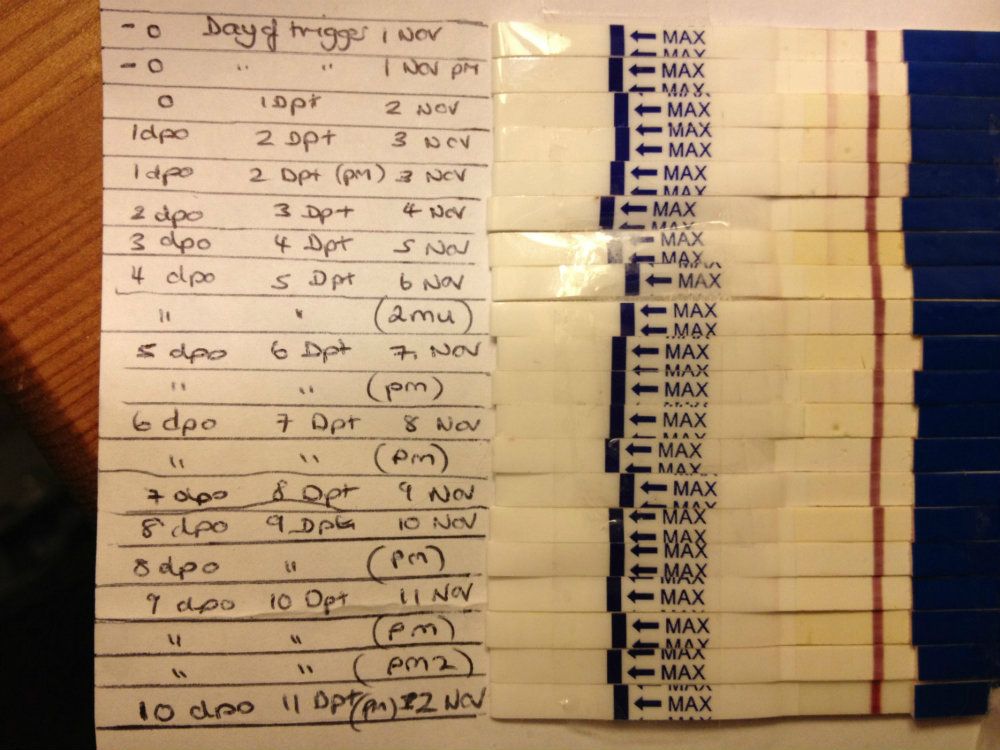 - 0 Day of trigger 1 NOV MAX
- 0 " " 1 NOV pm MAX
0 1 Dpt 2 NOV MAX
1dpo 2 Dpt 3 NOV MAX
1dpo 2 Dpt (pm) 3 NOV MAX
2 dpo 3 Dpt 4 NOV MAX
3 dpo 4 Dpt 5 NOV MAX
4 dpo 5 Dpt 6 NOV MAX
" " (2mu) MAX
5 dpo 6 Dpt 7 NOV MAX
" " (pm) MAX
6 dpo 7 Dpt 8 NOV MAX
" " (pm) MAX
7 dpo 8 Dpt 9 NOV MAX
8 dpo 9 Dpt 10 NOV MAX
8 dpo " (pm) MAX
9 dpo 10 Dpt 11 NOV MAX
" " (pm) MAX
" " (pm2) MAX
10 dpo 11 Dpt (pm) 12 NOV MAX